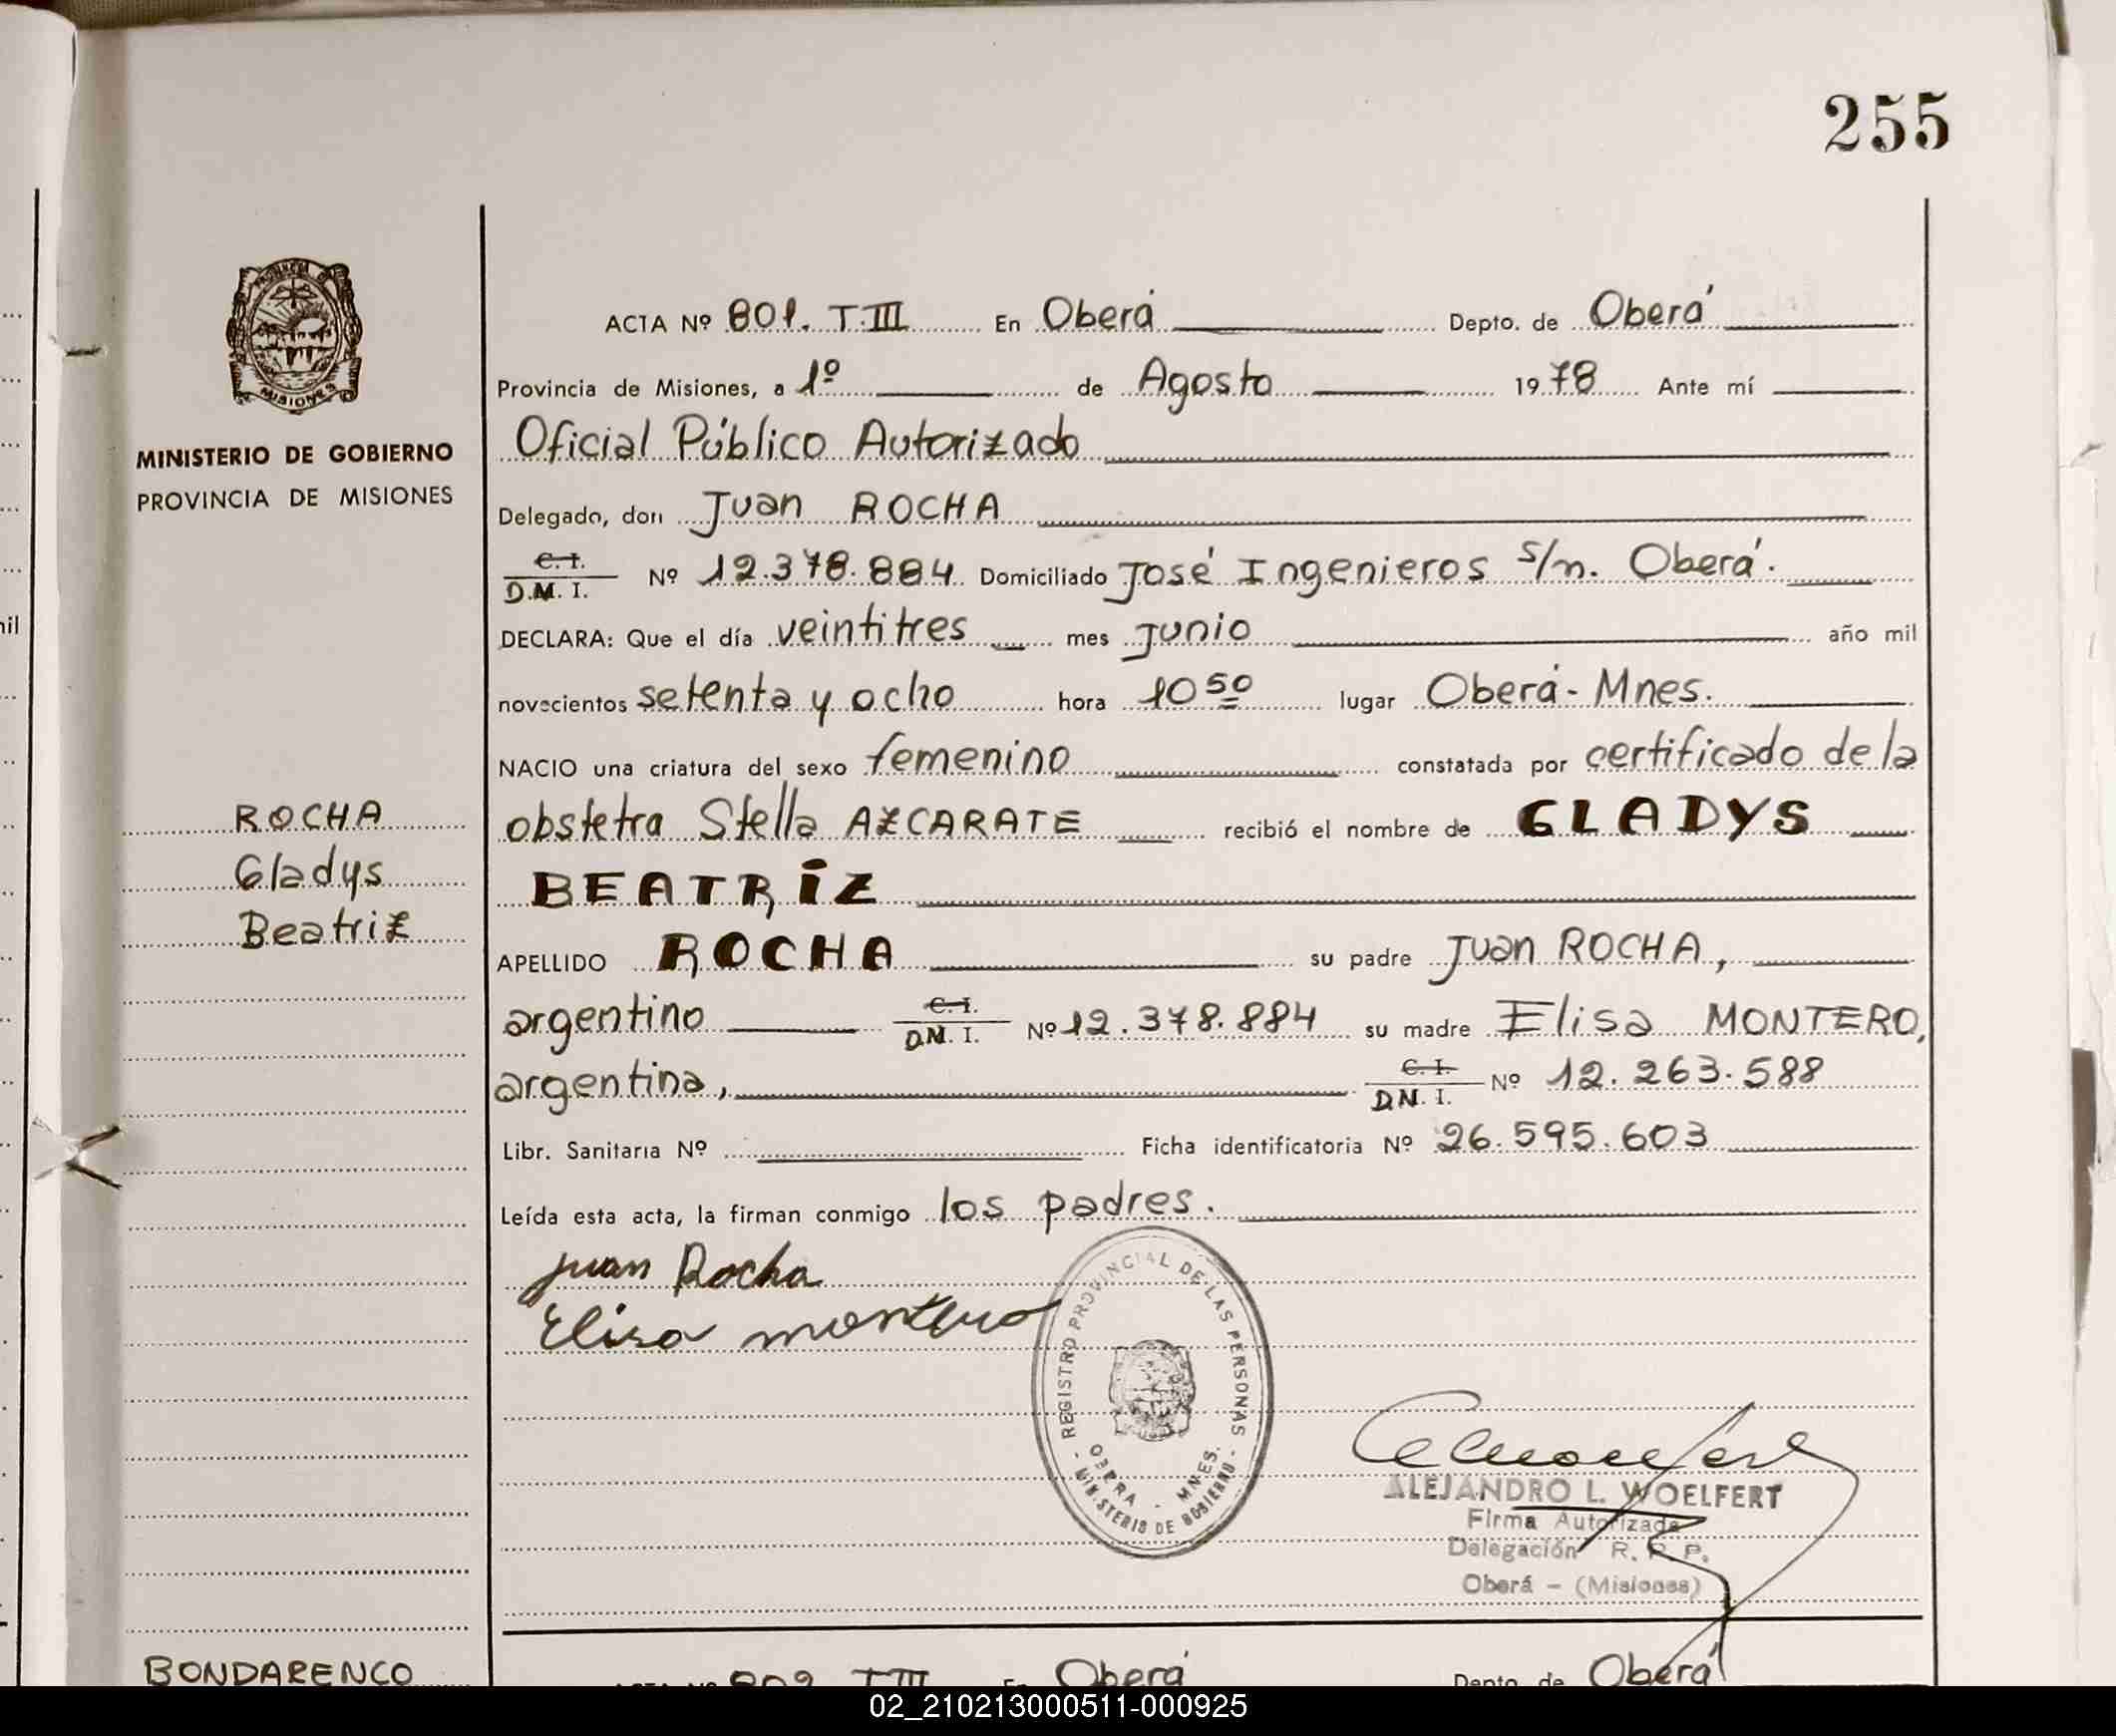 255
ACTA Nº 801. T.III En Oberá Depto. de Oberá
Provincia de Misiones, a 1º de Agosto 1978 Ante mí
Oficial Público Autorizado
Delegado, don Juan ROCHA
C.I. D.N.I. Nº 12.378.884 Domiciliado José Ingenieros s/n. Oberá.
DECLARA: Que el día veintitres mes junio año mil
novecientos setenta y ocho hora 10 50 lugar Oberá - Mnes.
NACIO una criatura del sexo femenino constatada por certificado de la
obstetra Stella AZCARATE recibió el nombre de GLADYS
BEATRÍZ
APELLIDO ROCHA su padre Juan ROCHA,
argentino C.I. D.N.I. Nº 12.378.884 su madre Elisa MONTERO,
argentina, C.I. D.N.I. Nº 12.263.588
Libr. Sanitaria Nº Ficha identificatoria Nº 26.595.603
Leída esta acta, la firman conmigo los padres.
Juan Rocha
Elisa montero
MINISTERIO DE GOBIERNO
PROVINCIA DE MISIONES
MISIONES
ROCHA
Gladys
Beatriz
REGISTRO PROVINCIAL DE LAS PERSONAS
OBERA - MNES.
MINISTERIO DE GOBIERNO
ALEJANDRO L. WOELFERT
Firma Autorizada
Delegación R. P. P.
Oberá - (Misiones)
BONDARENCO
ACTA Nº 802 T III En Oberá Depto. de Oberá
mil
02_210213000511-000925